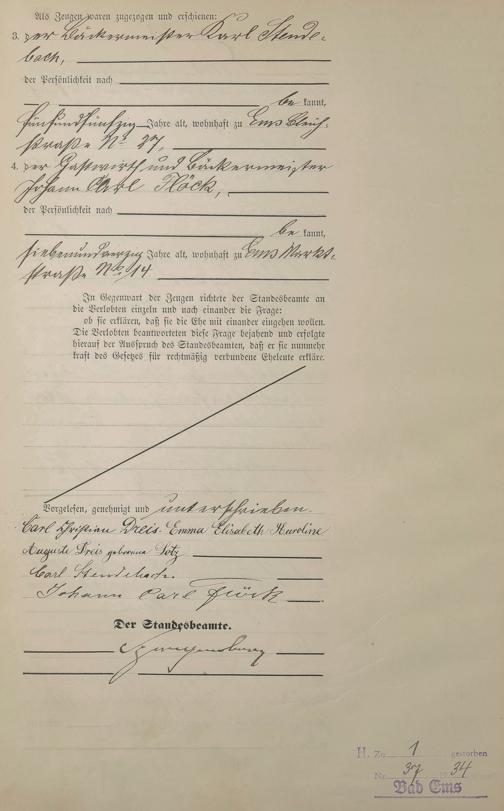 Als Zeugen waren zugezogen und erschienen:
3. der Bäckermeister Karl Stende-
bach,
der Persönlichkeit nach
be kannt,
fünfundfünfzig Jahre alt, wohnhaft zu Ems Bleich-
straße No 27,
4. der Gastwirth und Bäckermeister
Johann Carl Flöck,
der Persönlichkeit nach
be kannt,
siebenundvierzig Jahre alt, wohnhaft zu Ems Markt-
straße No 14
In Gegenwart der Zeugen richtete der Standesbeamte an
die Verlobten einzeln und nach einander die Frage:
ob sie erklären, daß sie die Ehe mit einander eingehen wollen.
Die Verlobten beantworteten diese Frage bejahend und erfolgte
hierauf der Ausspruch des Standesbeamten, daß er sie nunmehr
kraft des Gesetzes für rechtmäßig verbundene Eheleute erkläre.
Vorgelesen, genehmigt und unterschrieben.
Carl Christian Dreis Emma Elisabeth Karoline
Auguste Dreis geborene Lotz
Carl Stendebach.
Johann Carl Flöck
Der Standesbeamte.
H. Zu 1 gestorben
Nr. 37 34
Bad Ems